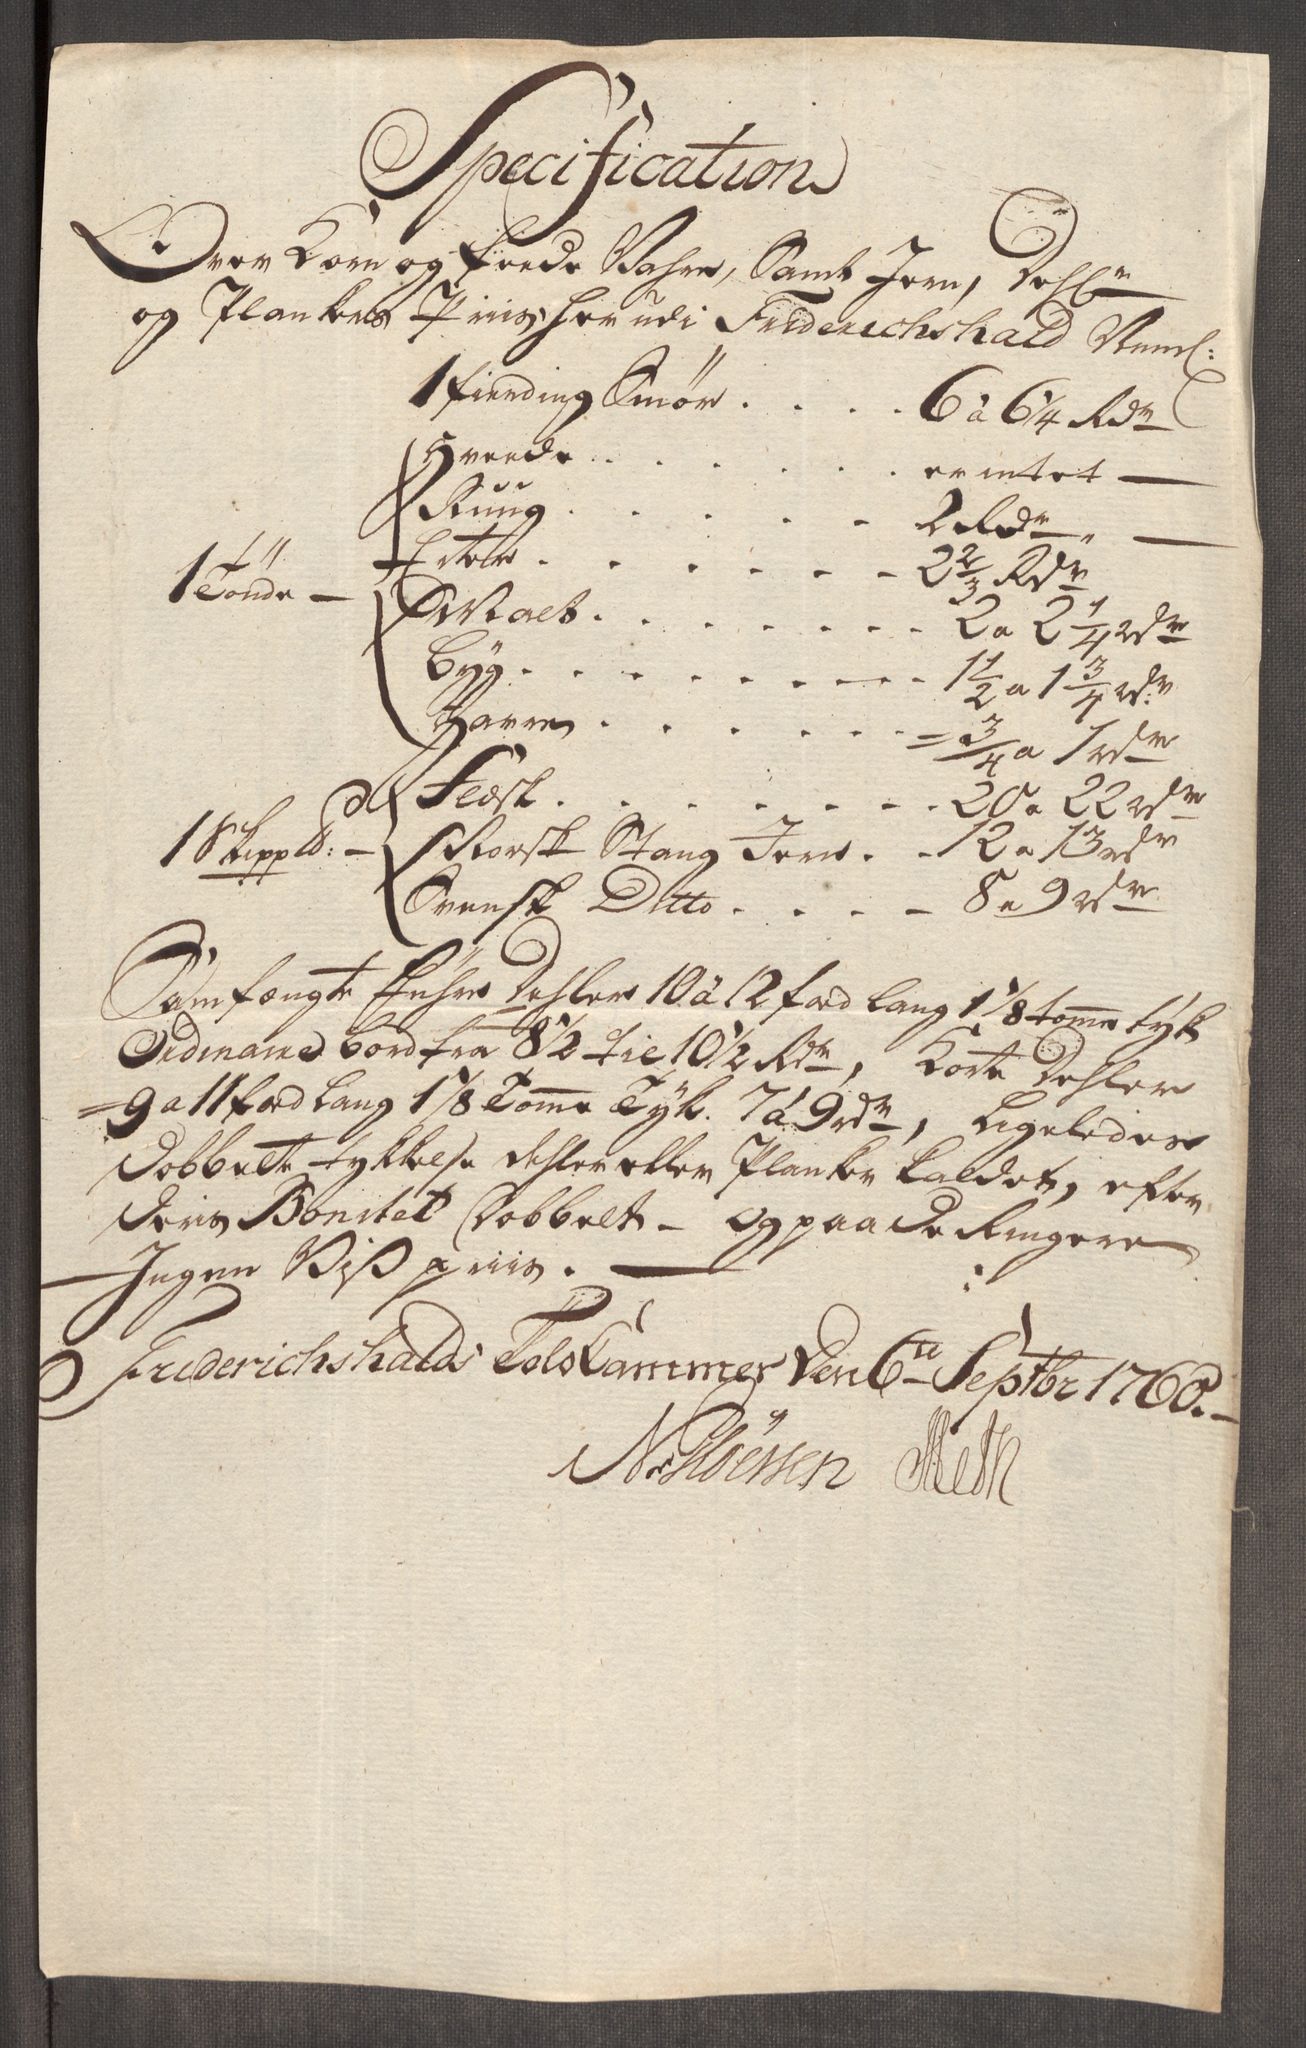 Specification
Over Korn og feede Vahre, Samt Jern, Dehle
og Plankers Priis her udi Friderichshald Neml:
1 fierding Smör . . . . 6 à 6 1/4 Rdr
Hveede . . . . . . er intet —
Ruug . . . . . 2 Rdr. —
1 Tönde — Erter . . . . . . . 2 2/3 Rdr
Malt . . . . . . . 2 a 2 1/4 rdr
Byg . . . . . . . . . 1 1/2 a 1 3/4 rdr
Havre . . . . . . = 3/4 a 1 rdr
Flesk . . . . . . . . 20 a 22 rdr
1 Skippd: — Norsk Stang Jern . . 12 a 13 rdr
Svensk Ditto . . . . 8 a 9 rdr
Samfængte Dehler 10 à 12 fod lang 1 1/8 tomme tyk
Ordinaire bord fra 8 1/2 til 10 1/2 Rdr, Korte Dehler
= 9 a 11 fod Lang 1 1/8 Tomme Tyk. 7 à 9 rdr, Ligeledes
dobbelt tykkelse dehler eller Planker kaldet, efter
deris Bonitet Dobbelt — og paa de Ringere
— Ingen Viß priis. —
Friderichshalds Told Cammer den 6te Septbr 1760. —